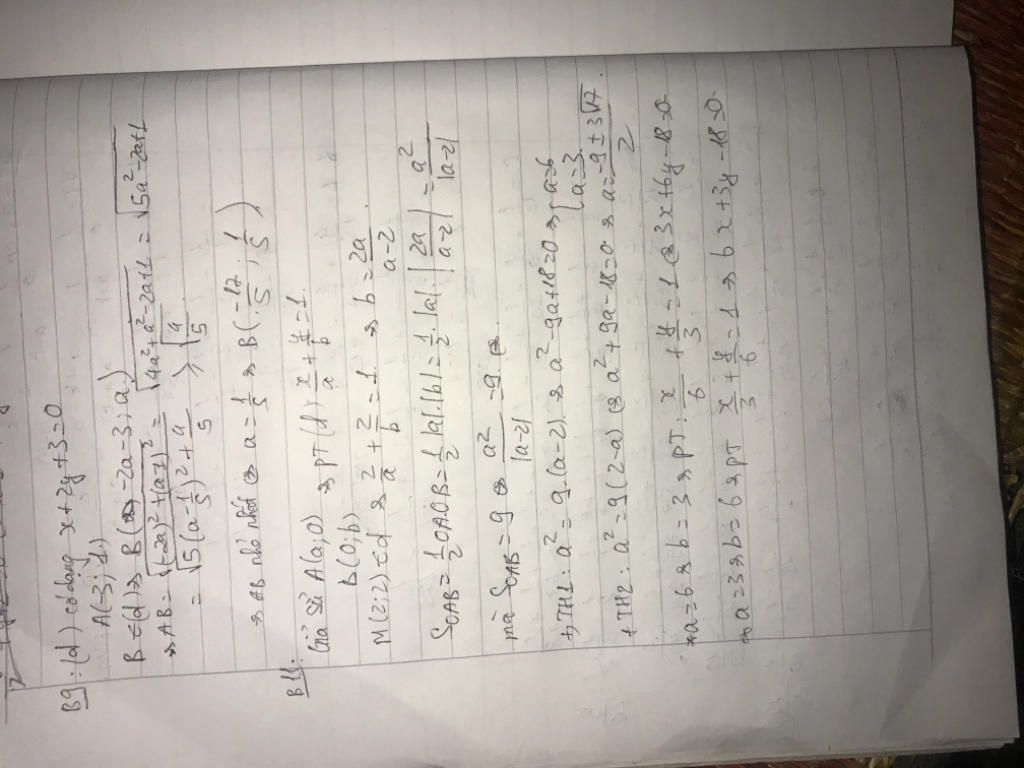 B9: (d) có dạng x + 2y + 3 = 0
A(-3; 1)
B ∈ (d) => B(-2a-3; a)
=> AB = √((-2a)² + (a-1)²) = √(4a² + a² - 2a + 1) = √(5a² - 2a + 1)
= √(5(a - 1/5)² + 4/5) ≥ √(4/5)
=> AB nhỏ nhất <=> a = 1/5 => B(-17/5; 1/5)
Giả sử A(a; 0) => PT (d) x/a + y/b = 1.
B(0; b)
M(2; 2) ∈ d => 2/a + 2/b = 1 => b = 2a/(a-2)
S_OAB = 1/2 OA.OB = 1/2 |a|.|b| = 1/2 . |a| . |2a/(a-2)| = a²/|a-2|
mà S_OAB = 9 <=> a²/|a-2| = 9 <=>
+, TH1: a² = 9.(a-2) => a² - 9a + 18 = 0 => [a = 6
[a = 3
+ TH2: a² = 9(2-a) <=> a² + 9a - 18 = 0 => a = (-9 ± 3√17)/2.
* a = 6 => b = 3 => PT: x/6 + y/3 = 1 <=> 3x + 6y - 18 = 0
* a = 3 => b = 6 => PT x/3 + y/6 = 1 => 6x + 3y - 18 = 0.